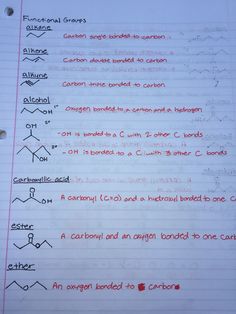 Functional Groups
alkane
Carbon single bonded to carbon
alkene
Carbon double bonded to carbon
alkyne
Carbon triple bonded to carbon
alcohol
OH
Oxygen bonded to a carbon and a hydrogen
OH
-OH is bonded to a C with 2 other C bonds
-OH is bonded to a C with 3 other C bonds
OH
carboxylic acid
O
OH
A carbonyl (C=O) and a hydroxyl bonded to one C
ester
O
O
A carbonyl and an oxygen bonded to one carb
ether
O
An oxygen bonded to carbon